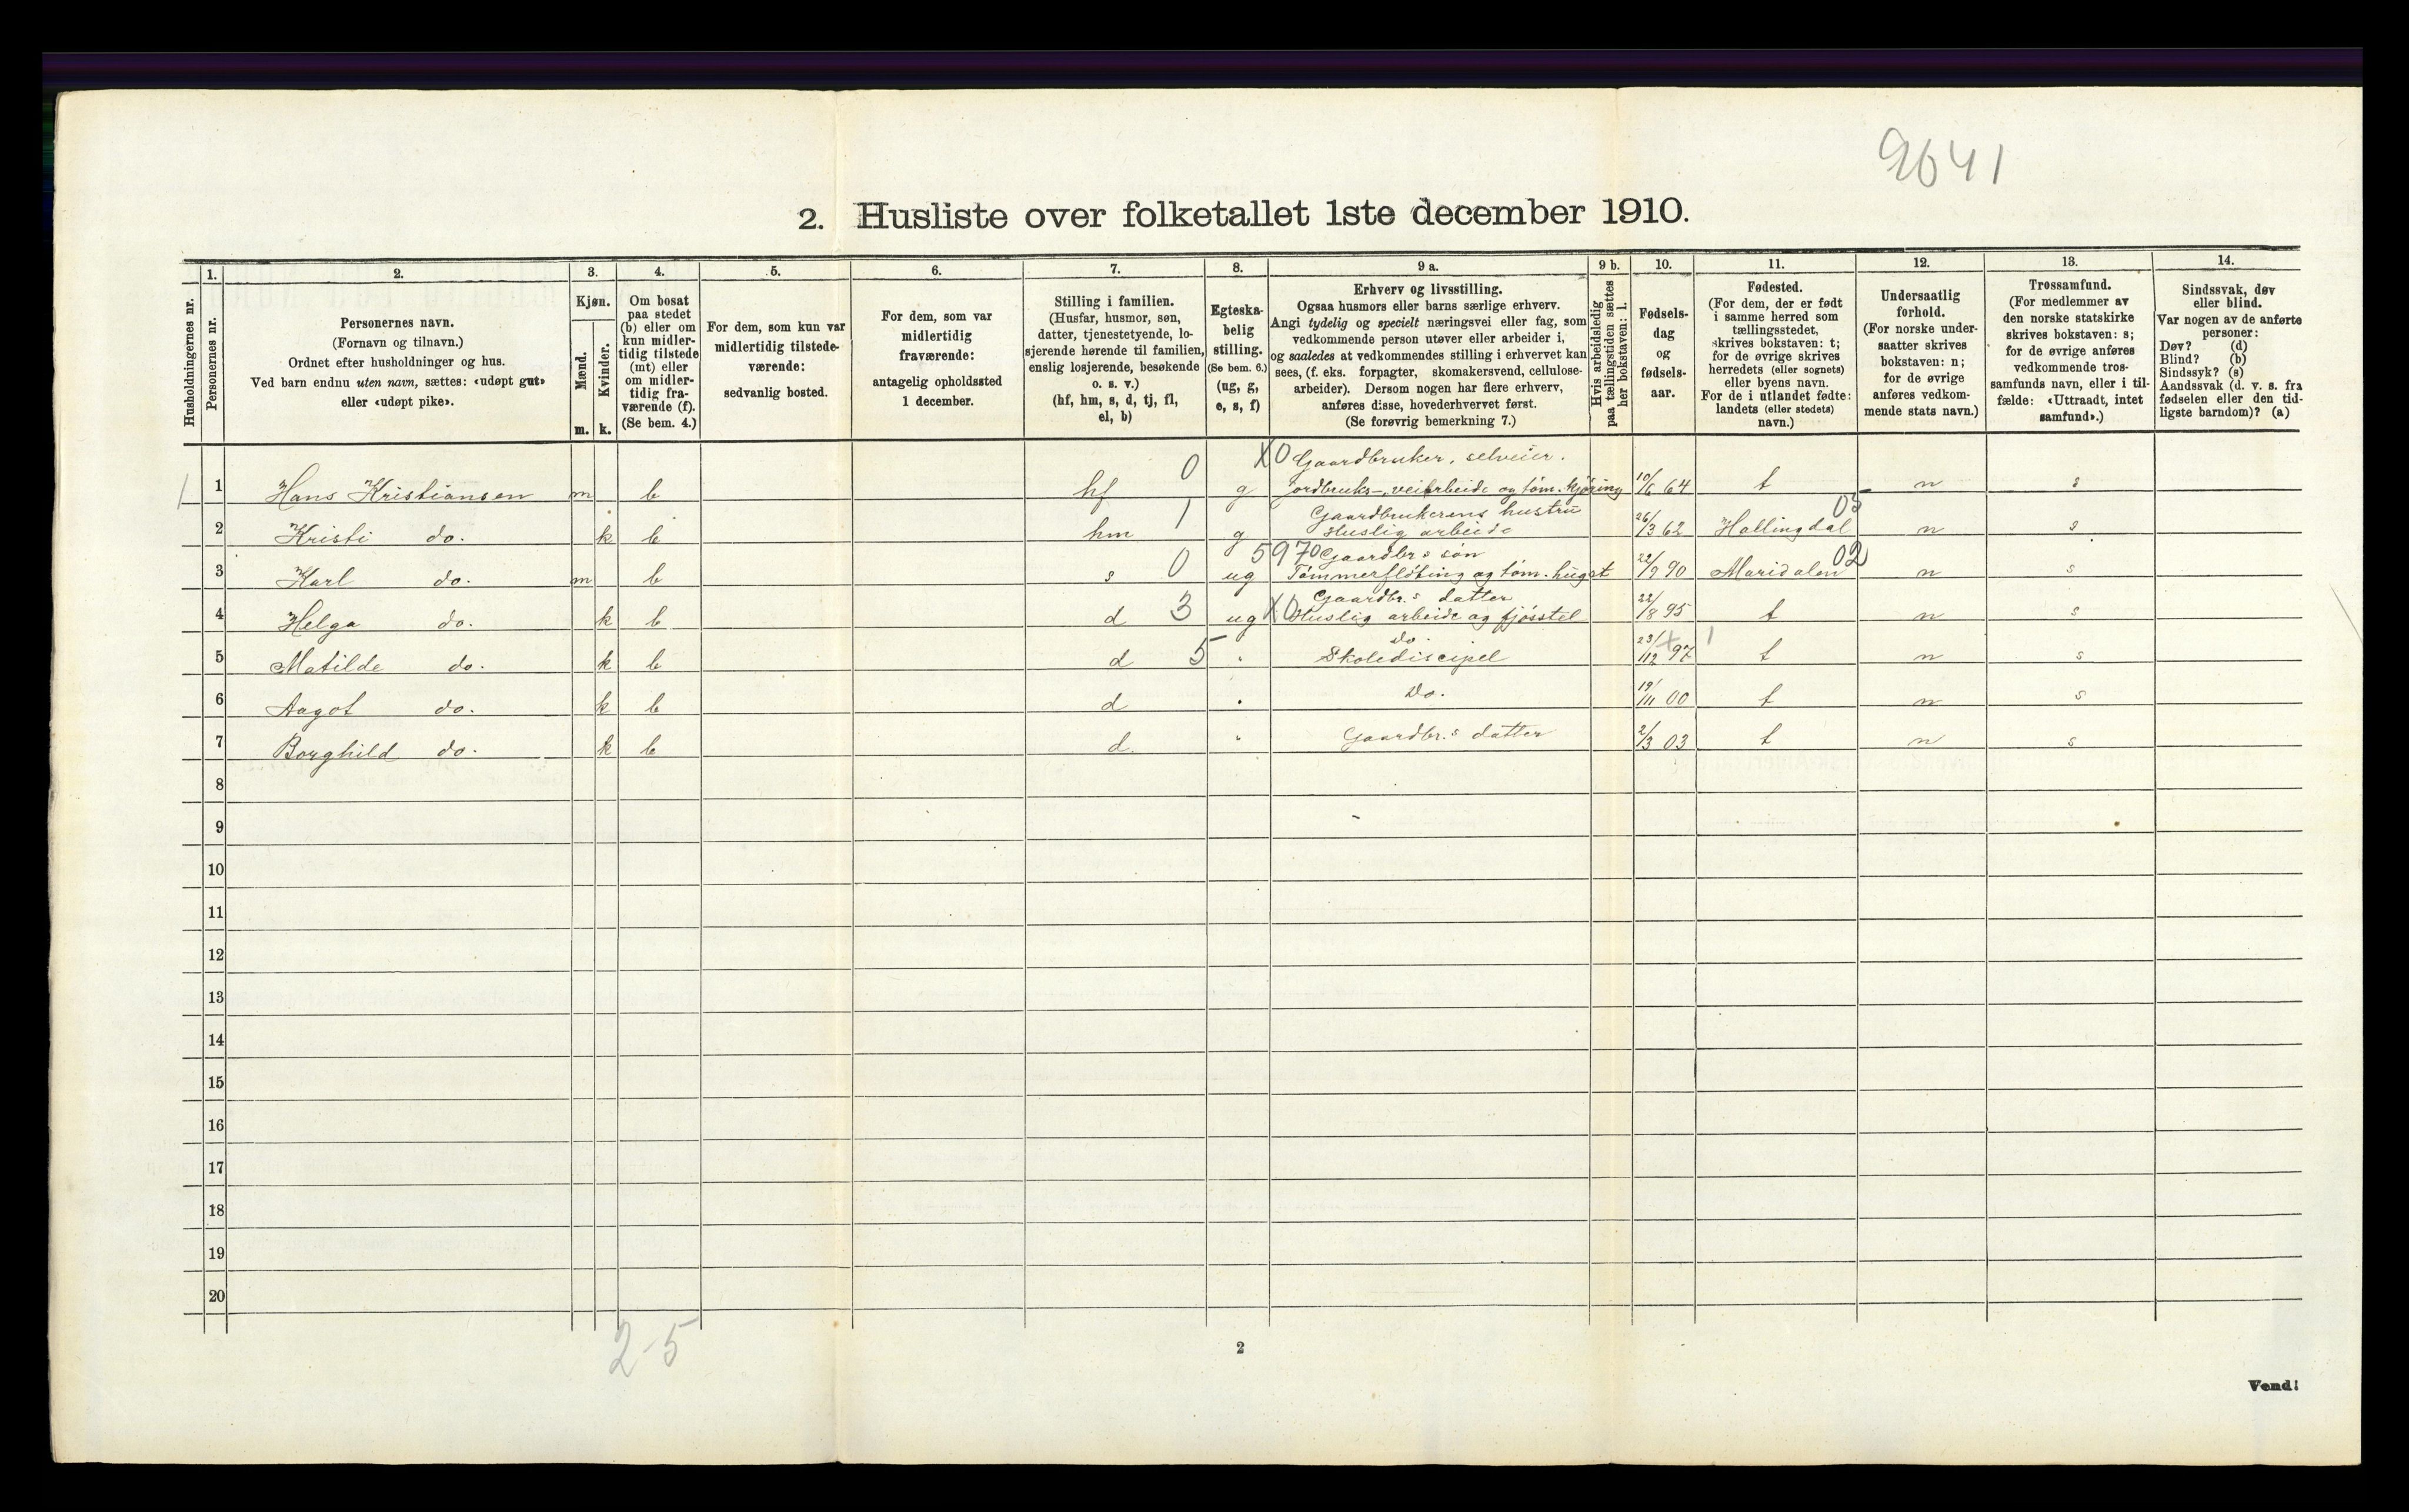 2641
2. Husliste over folketallet 1ste december 1910.
1. 2. 3. 4. 5. 6. 7. 8. 9 a. 9 b. 10. 11. 12. 13. 14.
Husholdningernes nr.
Personernes nr.
Personernes navn.
(Fornavn og tilnavn.)
Ordnet efter husholdninger og hus.
Ved barn endnu uten navn, sættes: «udøpt gut»
eller «udøpt pike».
Kjøn.
Mænd.
Kvinder.
m. k.
Om bosat
paa stedet
(b) eller om
kun midler-
tidig tilstede
(mt) eller
om midler-
tidig fra-
værende (f).
(Se bem. 4.)
For dem, som kun var
midlertidig tilstede-
værende:
sedvanlig bosted.
For dem, som var
midlertidig
fraværende:
antagelig opholdssted
1 december.
Stilling i familien.
(Husfar, husmor, søn,
datter, tjenestetyende, lo-
sjerende hørende til familien,
enslig losjerende, besøkende
o. s. v.)
(hf, hm, s, d, tj, fl,
el, b)
Egteska-
belig
stilling.
(Se bem. 6.)
(ug, g,
e, s, f)
Erhverv og livsstilling.
Ogsaa husmors eller barns særlige erhverv.
Angi tydelig og specielt næringsvei eller fag, som
vedkommende person utøver eller arbeider i,
og saaledes at vedkommendes stilling i erhvervet kan
sees, (f. eks. forpagter, skomakersvend, cellulose-
arbeider). Dersom nogen har flere erhverv,
anføres disse, hovederhvervet først.
(Se forøvrig bemerkning 7.)
Hvis arbeidsledig
paa tællingstiden sættes
her bokstaven: l.
Fødsels-
dag
og
fødsels-
aar.
Fødested.
(For dem, der er født
i samme herred som
tællingsstedet,
skrives bokstaven: t;
for de øvrige skrives
herredets (eller sognets)
eller byens navn.
For de i utlandet fødte:
landets (eller stedets)
navn.)
Undersaatlig
forhold.
(For norske under-
saatter skrives
bokstaven: n;
for de øvrige
anføres vedkom-
mende stats navn.)
Trossamfund.
(For medlemmer av
den norske statskirke
skrives bokstaven: s;
for de øvrige anføres
vedkommende tros-
samfunds navn, eller i til-
fælde: «Uttraadt, intet
samfund».)
Sindssvak, døv
eller blind.
Var nogen av de anførte
personer:
Døv? (d)
Blind? (b)
Sindssyk? (s)
Aandssvak (d. v. s. fra
fødselen eller den tid-
ligste barndom)? (a)
0 X0 Gaardbruker, selveier.
1 1 Hans Kristiansen m b hf g Jordbruks-, veiarbeide og tøm. kjøring 10/6 64 t n s
1 Gaardbrukerens hustru 05
2 Kristi do. k b hm g Huslig arbeide 26/3 62 Hallingdal n s
0 5970 Gaardbr.s søn 02
3 Karl do. m b s ug Tømmerfløting og tøm. hugst 22/9 90 Maridalen n s
3 X0 Gaardbr.s datter
4 Helga do. k b d ug Huslig arbeide og fjøsstel 22/8 95 t n s
5 do.
5 Matilde do. k b d " Skolediscipel 23/12 97 t n s
6 Aagot do. k b d " Do. 19/11 00 t n s
7 Borghild do. k b d " Gaardbr.s datter 2/3 03 t n s
8
9
10
11
12
13
14
15
16
17
18
19
20
2-5
2
Vend!